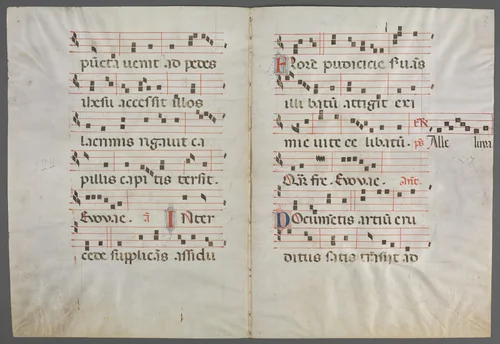 pūcta uenit ad pedes
ihesu accessit illos
lacrimis rigauit ca
pillis capi tis tersit.
Euouae. a͞ INter
cede supplicās assidu
FLore pudicicie suūs
illi batū attigit exi
mie uite ce libatū.
Alle luia
Euouae. Ant̄.
DOcumētis artiū eru
ditus satis trāsiit ad